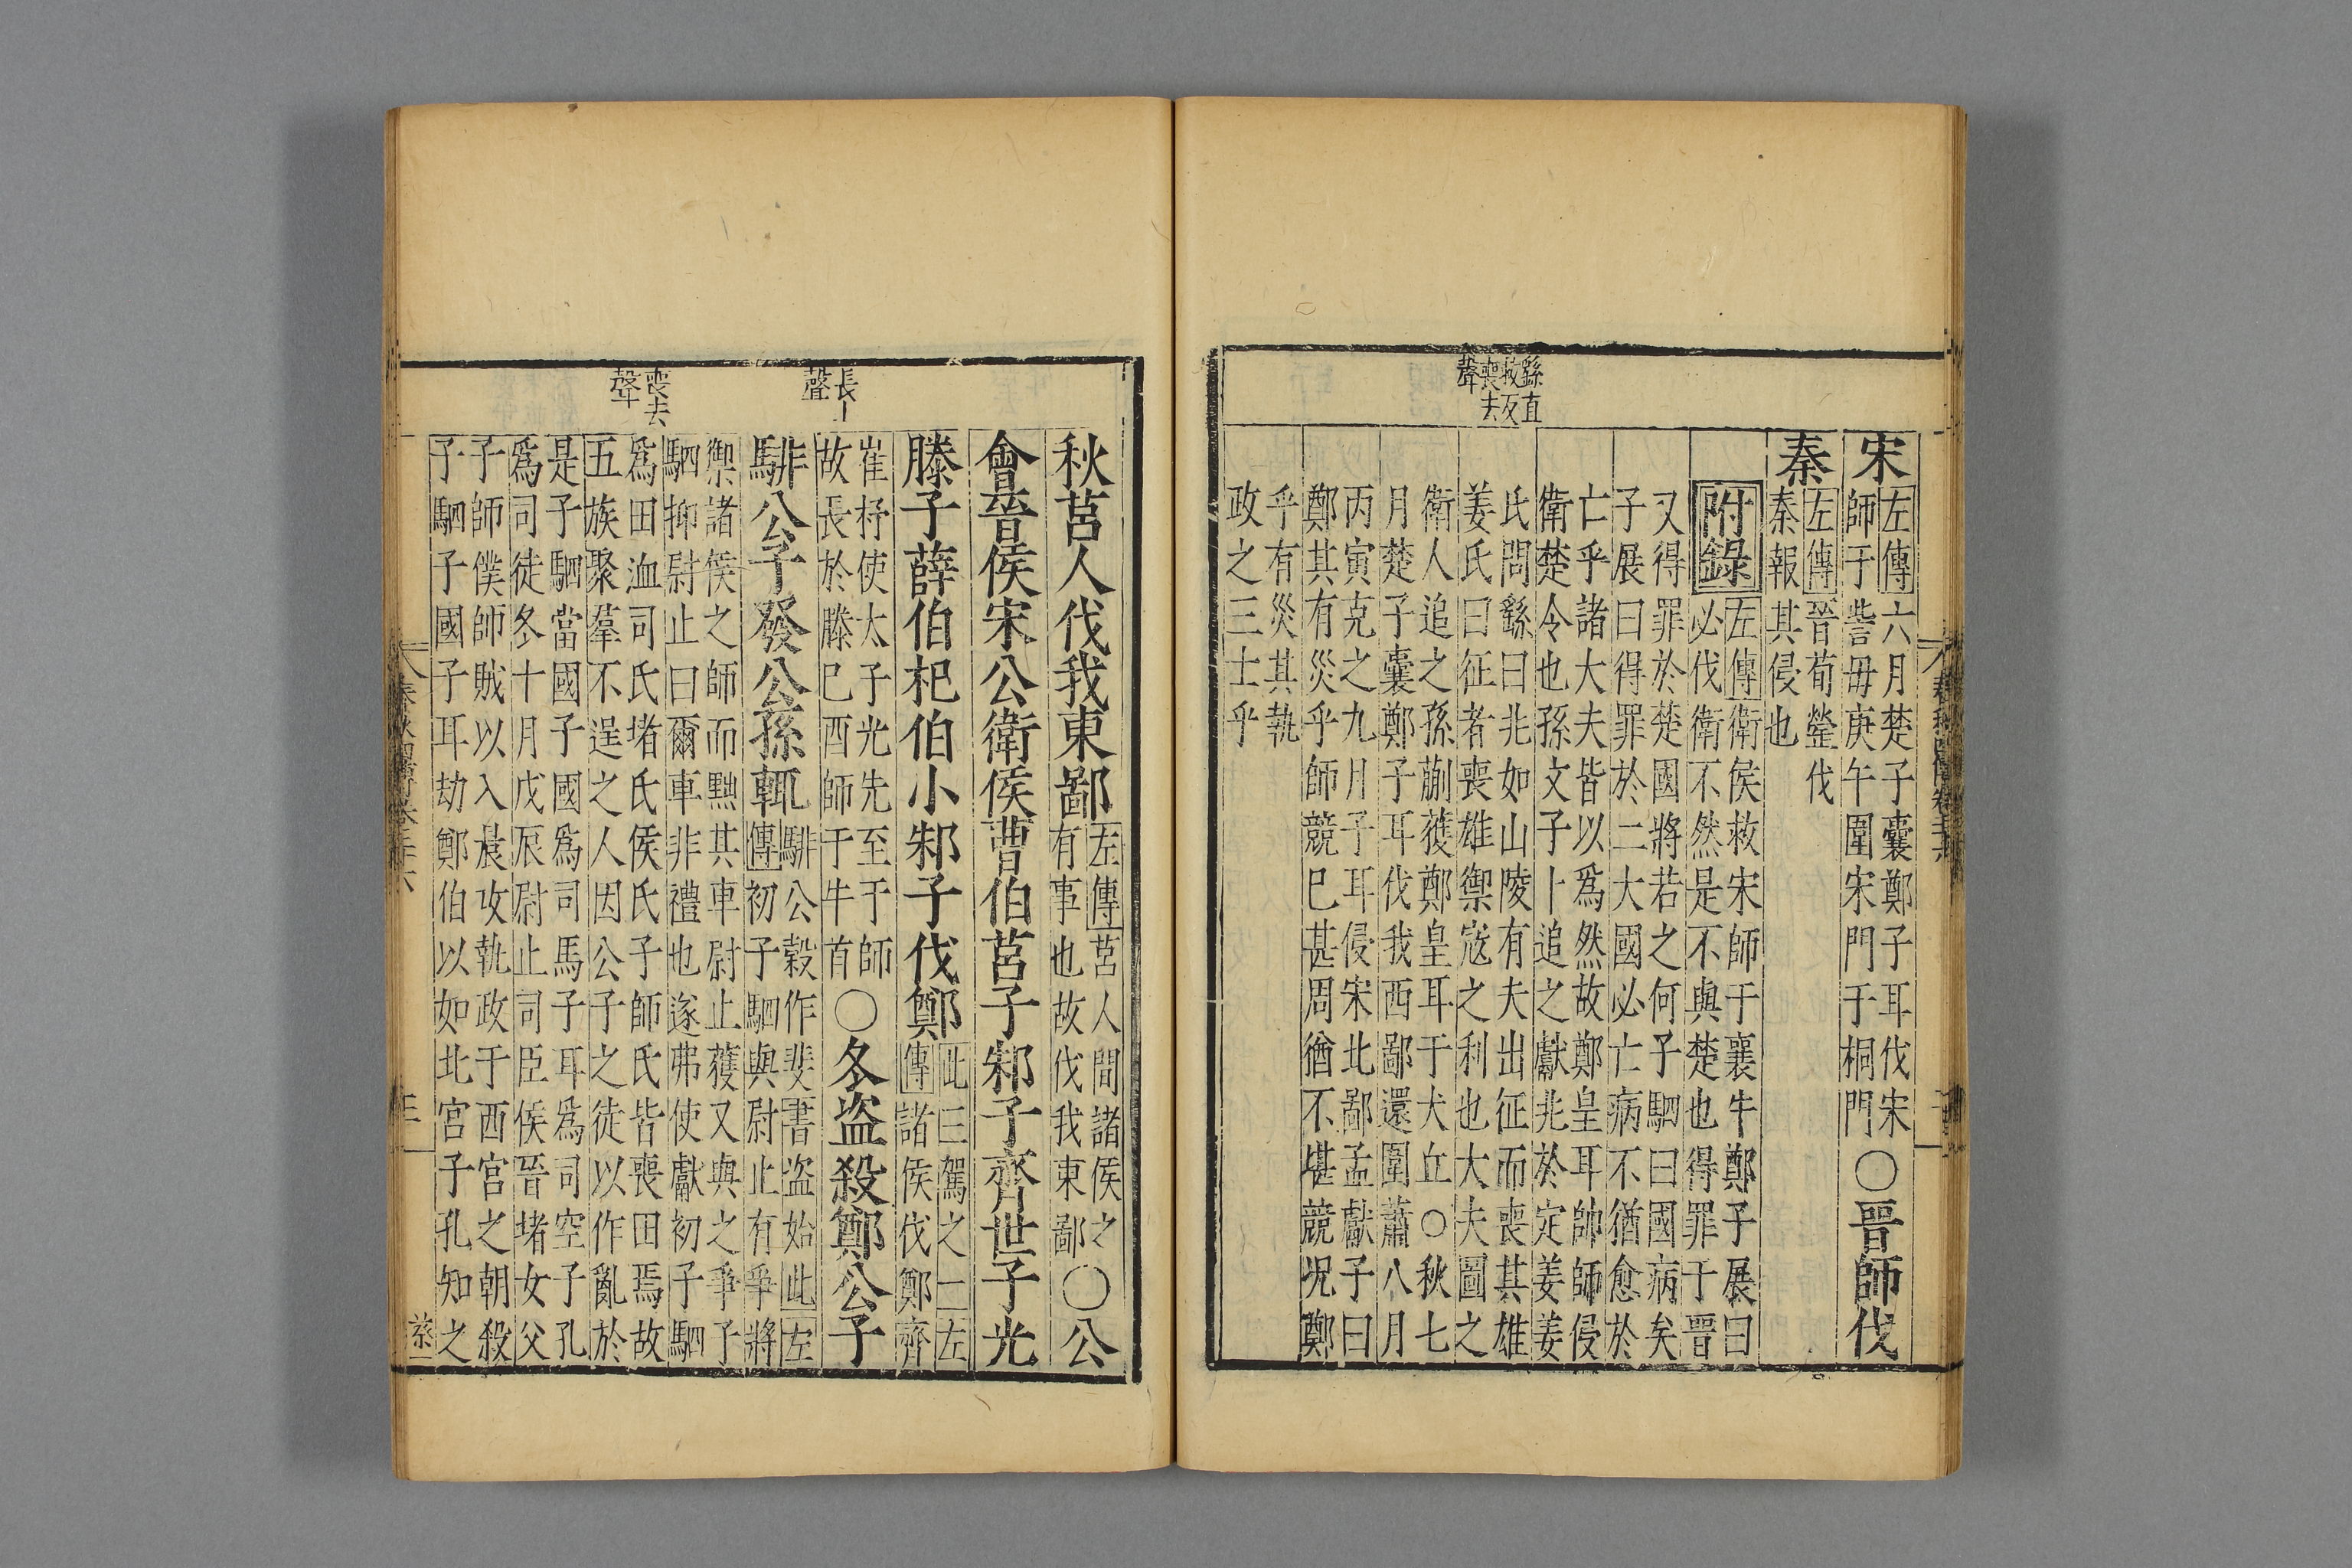 繇直
救反
喪去
聲
宋
左傳六月楚子囊鄭子耳伐宋
師于訾毋庚午圍宋門于桐門
〇晉師伐
秦
左傳晉荀罃伐
秦報其侵也
附錄
左傳衛侯救宋師于襄牛鄭子展曰
必伐衛不然是不與楚也得罪于晉
又得罪於楚國將若之何子駟曰國病矣
子展曰得罪於二大國必亡病不猶愈於
亡乎諸大夫皆以爲然故鄭皇耳帥師侵
衛楚令也孫文子卜追之獻兆於定姜姜
氏問繇曰兆如山陵有夫出征而喪其雄
姜氏曰征者喪雄禦寇之利也大夫圖之
衛人追之孫蒯獲鄭皇耳于犬丘〇秋七
月楚子囊鄭子耳伐我西鄙還圍蕭八月
丙寅克之九月子耳侵宋北鄙孟獻子曰
鄭其有災乎師競巳甚周猶不堪競況鄭
乎有災其執
政之三士乎
長上
聲
喪去
聲
秋莒人伐我東鄙
左傳莒人間諸侯之
有事也故伐我東鄙
〇公
會晉侯宋公衛侯曹伯莒子邾子齊世子光
滕子薛伯杞伯小邾子伐鄭
此三駕之一左
傳諸侯伐鄭齊
崔杼使太子光先至于師
故長於滕巳酉師于牛首
〇冬盜殺鄭公子
騑公子發公孫輒
騑公穀作斐書盜始此左
傳初子駟與尉止有爭將
禦諸侯之師而黜其車尉止獲又與之爭子
駟抑尉止曰爾車非禮也遂弗使獻初子駟
爲田洫司氏堵氏侯氏子師氏皆喪田焉故
五族聚羣不逞之人因公子之徒以作亂於
是子駟當國子國爲司馬子耳爲司空子孔
爲司徒冬十月戊辰尉止司臣侯晉堵女父
子師僕師賊以入晨攻執政于西宮之朝殺
子駟子國子耳劫鄭伯以如北宮子孔知之